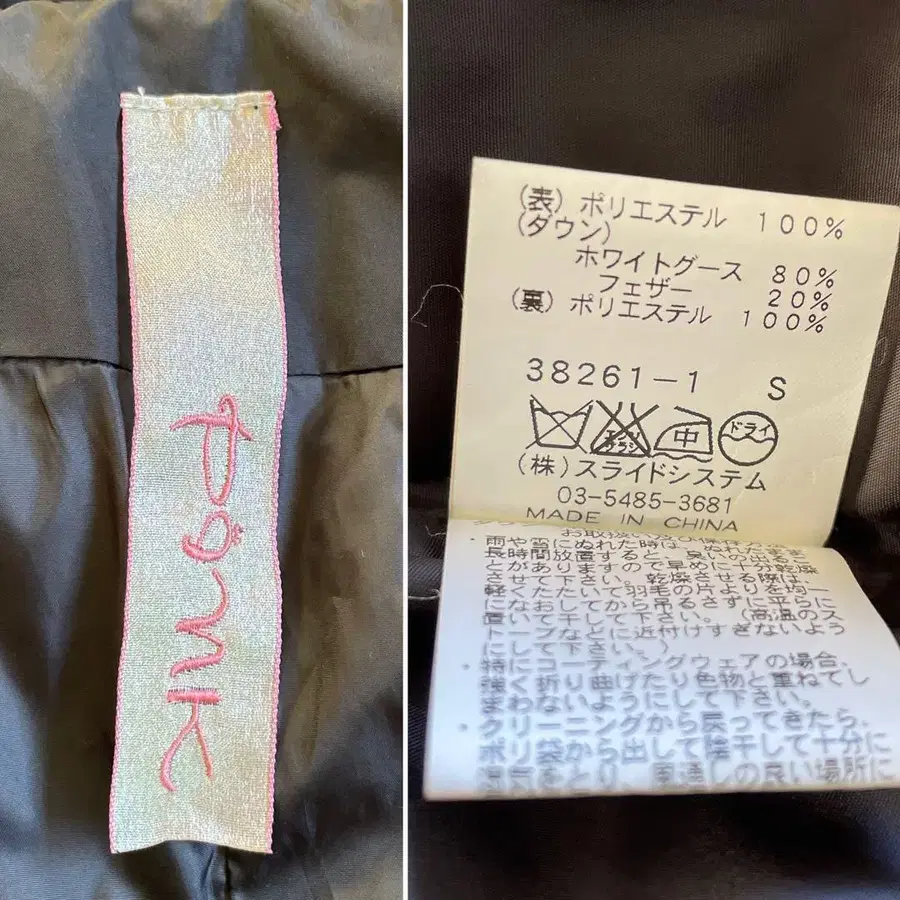 ponk
(表) ポリエステル 100%
(ダウン)
ホワイトグース 80%
フェザー 20%
(裏) ポリエステル 100%
38261-1 S
エンソ
サラシ
中
ドライ
(株) スライドシステム
03-5485-3681
MADE IN CHINA
・雨や雪にぬれた時は、ぬれたまま
長時間放置すると、臭いの出るこ
とがありますので早めに十分乾燥
させて下さい。乾燥させる際は、
軽くたたいて羽毛の片よりを均一
になおしてから吊るさずに平らに
置いて干して下さい。(高温のス
トーブなどに近付けすぎないよう
にして下さい。)
・特にコーティングウェアの場合、
強く折り曲げたり色物と重ねてし
まわないようにして下さい。
・クリーニングから戻ってきたら、
ポリ袋から出して陰干して十分に
湿気をとり、風通しの良い場所に